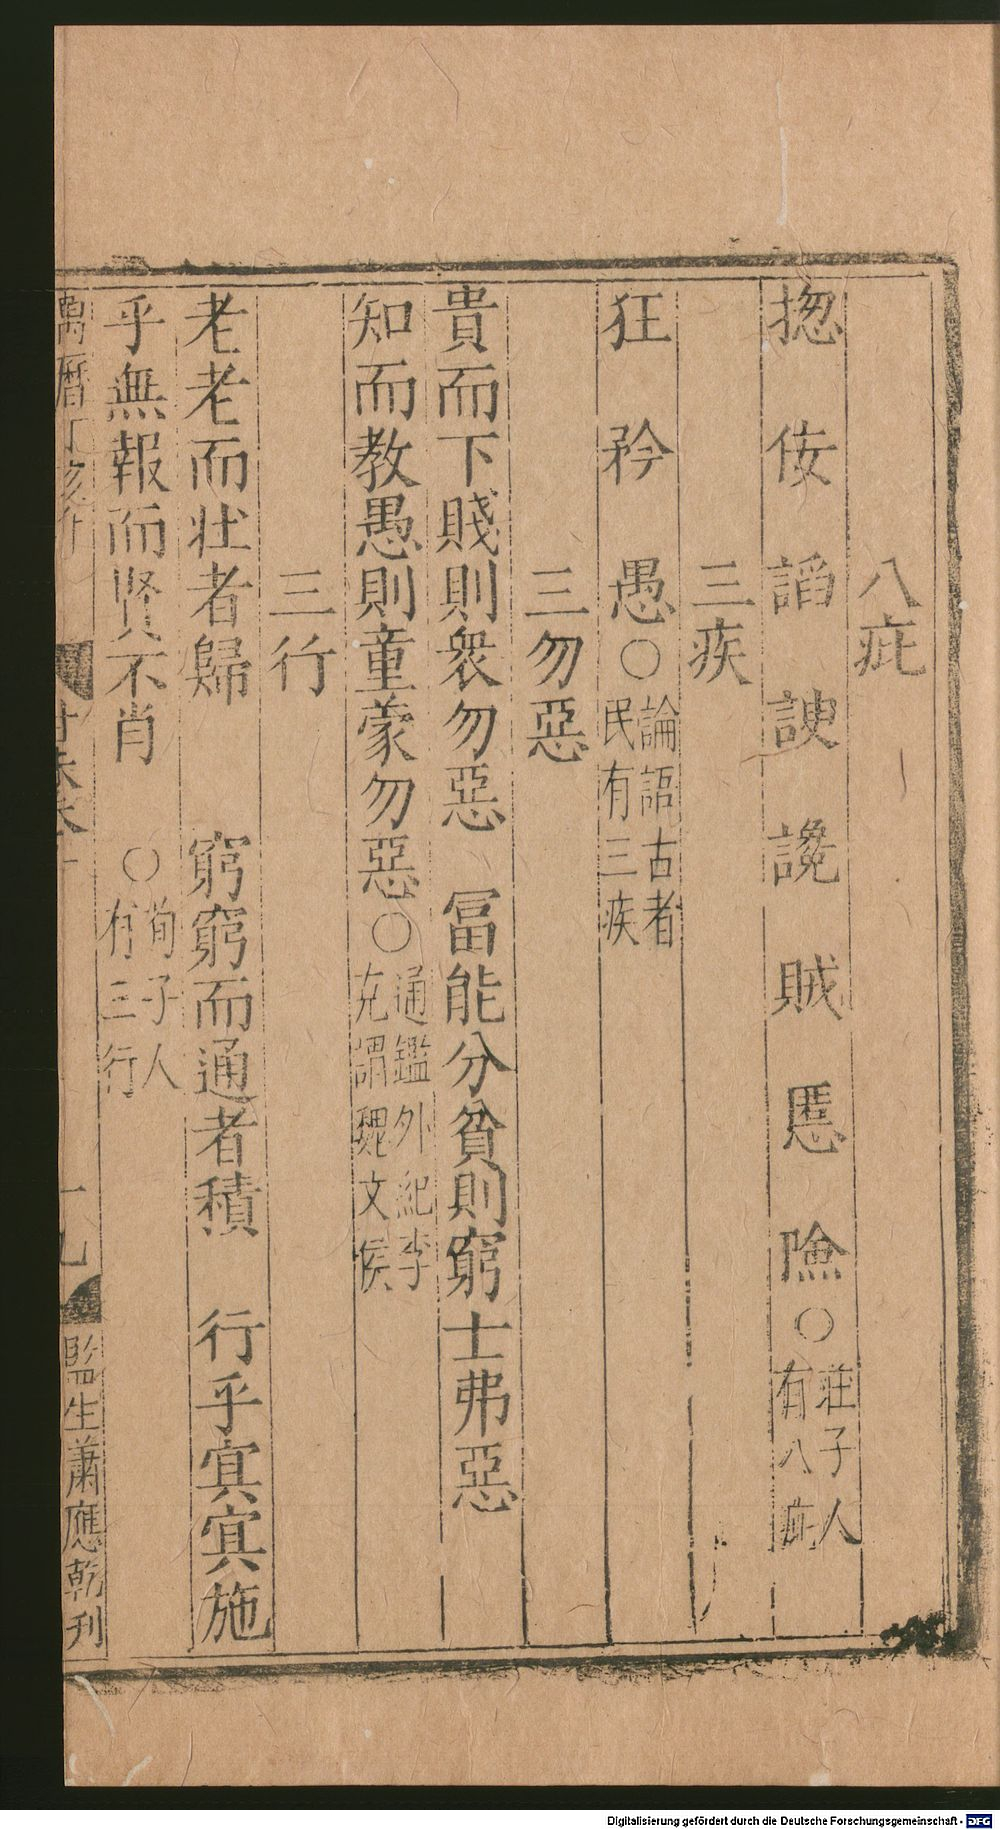 八疵
揔 佞 謟 諛 讒 賊 慝 險○莊子人有八疵
三疾
狂 矜 愚○論語古者民有三疾
三勿惡
貴而下賤則衆勿惡 冨能分貧則窮士弗惡
知而教愚則童蒙勿惡○通鑑外紀李克謂魏文侯
三行
老老而壮者歸 窮窮而通者積 行乎㝠㝠施
乎無報而賢不肖 ○荀子人有三行
萬曆丁亥刊 一九 監生蕭應乾刊
Digitalisierung gefördert durch die Deutsche Forschungsgemeinschaft - DFG